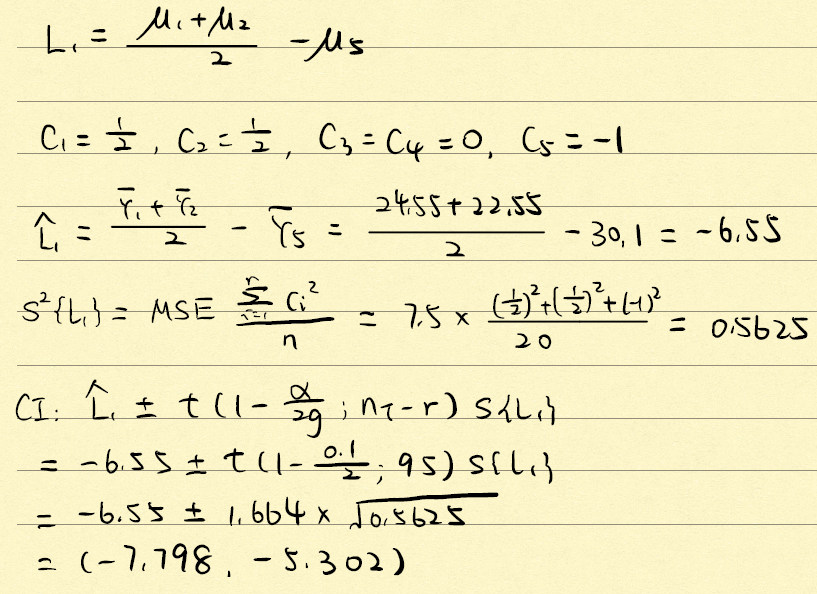 L₁ = (μ₁ + μ₂)/2 - μ₅
C₁ = 1/2, C₂ = 1/2, C₃ = C₄ = 0, C₅ = -1
L̂₁ = (Ȳ₁ + Ȳ₂)/2 - Ȳ₅ = (24.55 + 22.55)/2 - 30.1 = -6.55
S²{L₁} = MSE (Σᵢ₌₁ʳ Cᵢ²)/n = 7.5 × ((1/2)² + (1/2)² + (-1)²)/20 = 0.5625
CI: L̂₁ ± t(1 - α/2g ; n_T - r) S{L₁}
= -6.55 ± t(1 - 0.1/2 ; 95) S{L₁}
= -6.55 ± 1.664 × √0.5625
= (-7.798, -5.302)